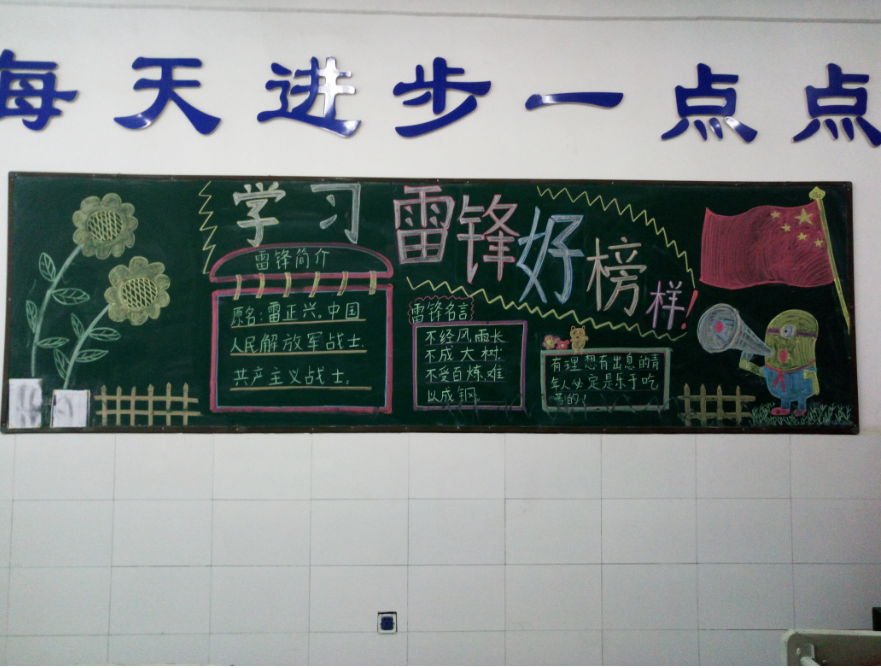 每天进步一点点
学习雷锋好榜样!
雷锋简介
原名:雷正兴。中国
人民解放军战士
共产主义战士。
雷锋名言
不经风雨长
不成大树
不受百炼难
以成钢。
有理想有出息的青
年人必定是乐于吃
苦的!